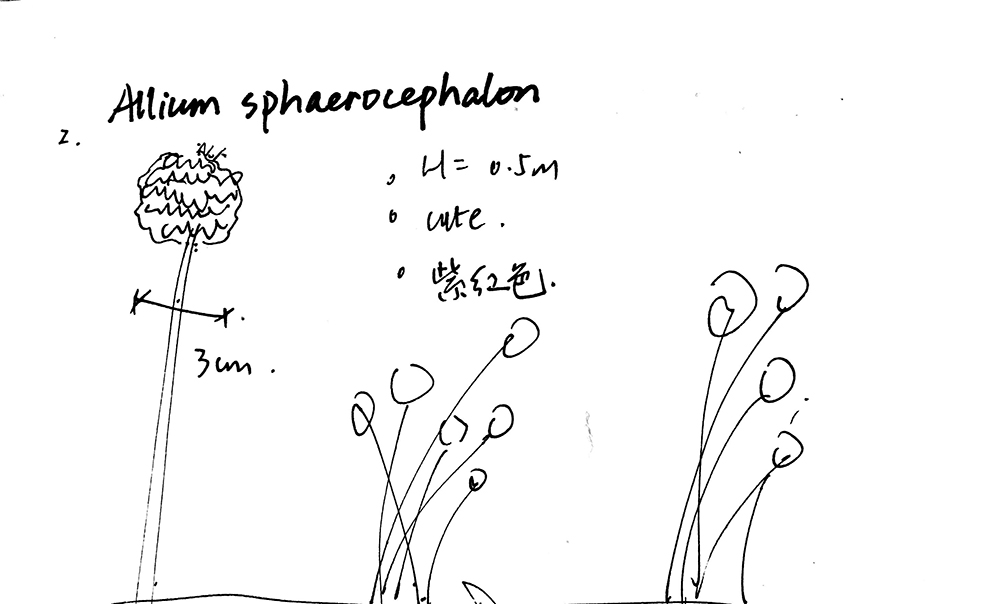 Allium sphaerocephalon
2.
H = 0.5m
cute.
紫红色.
3cm.